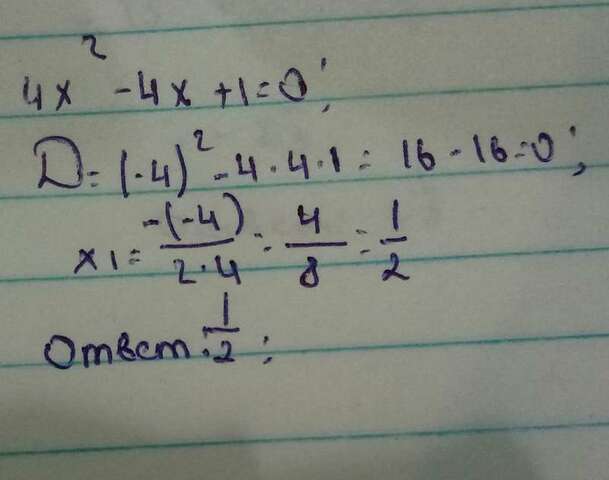 4x² - 4x + 1 = 0;
D = (-4)² - 4 · 4 · 1 = 16 - 16 = 0;
x1 = -(-4)/2·4 = 4/8 = 1/2
Ответ: 1/2;